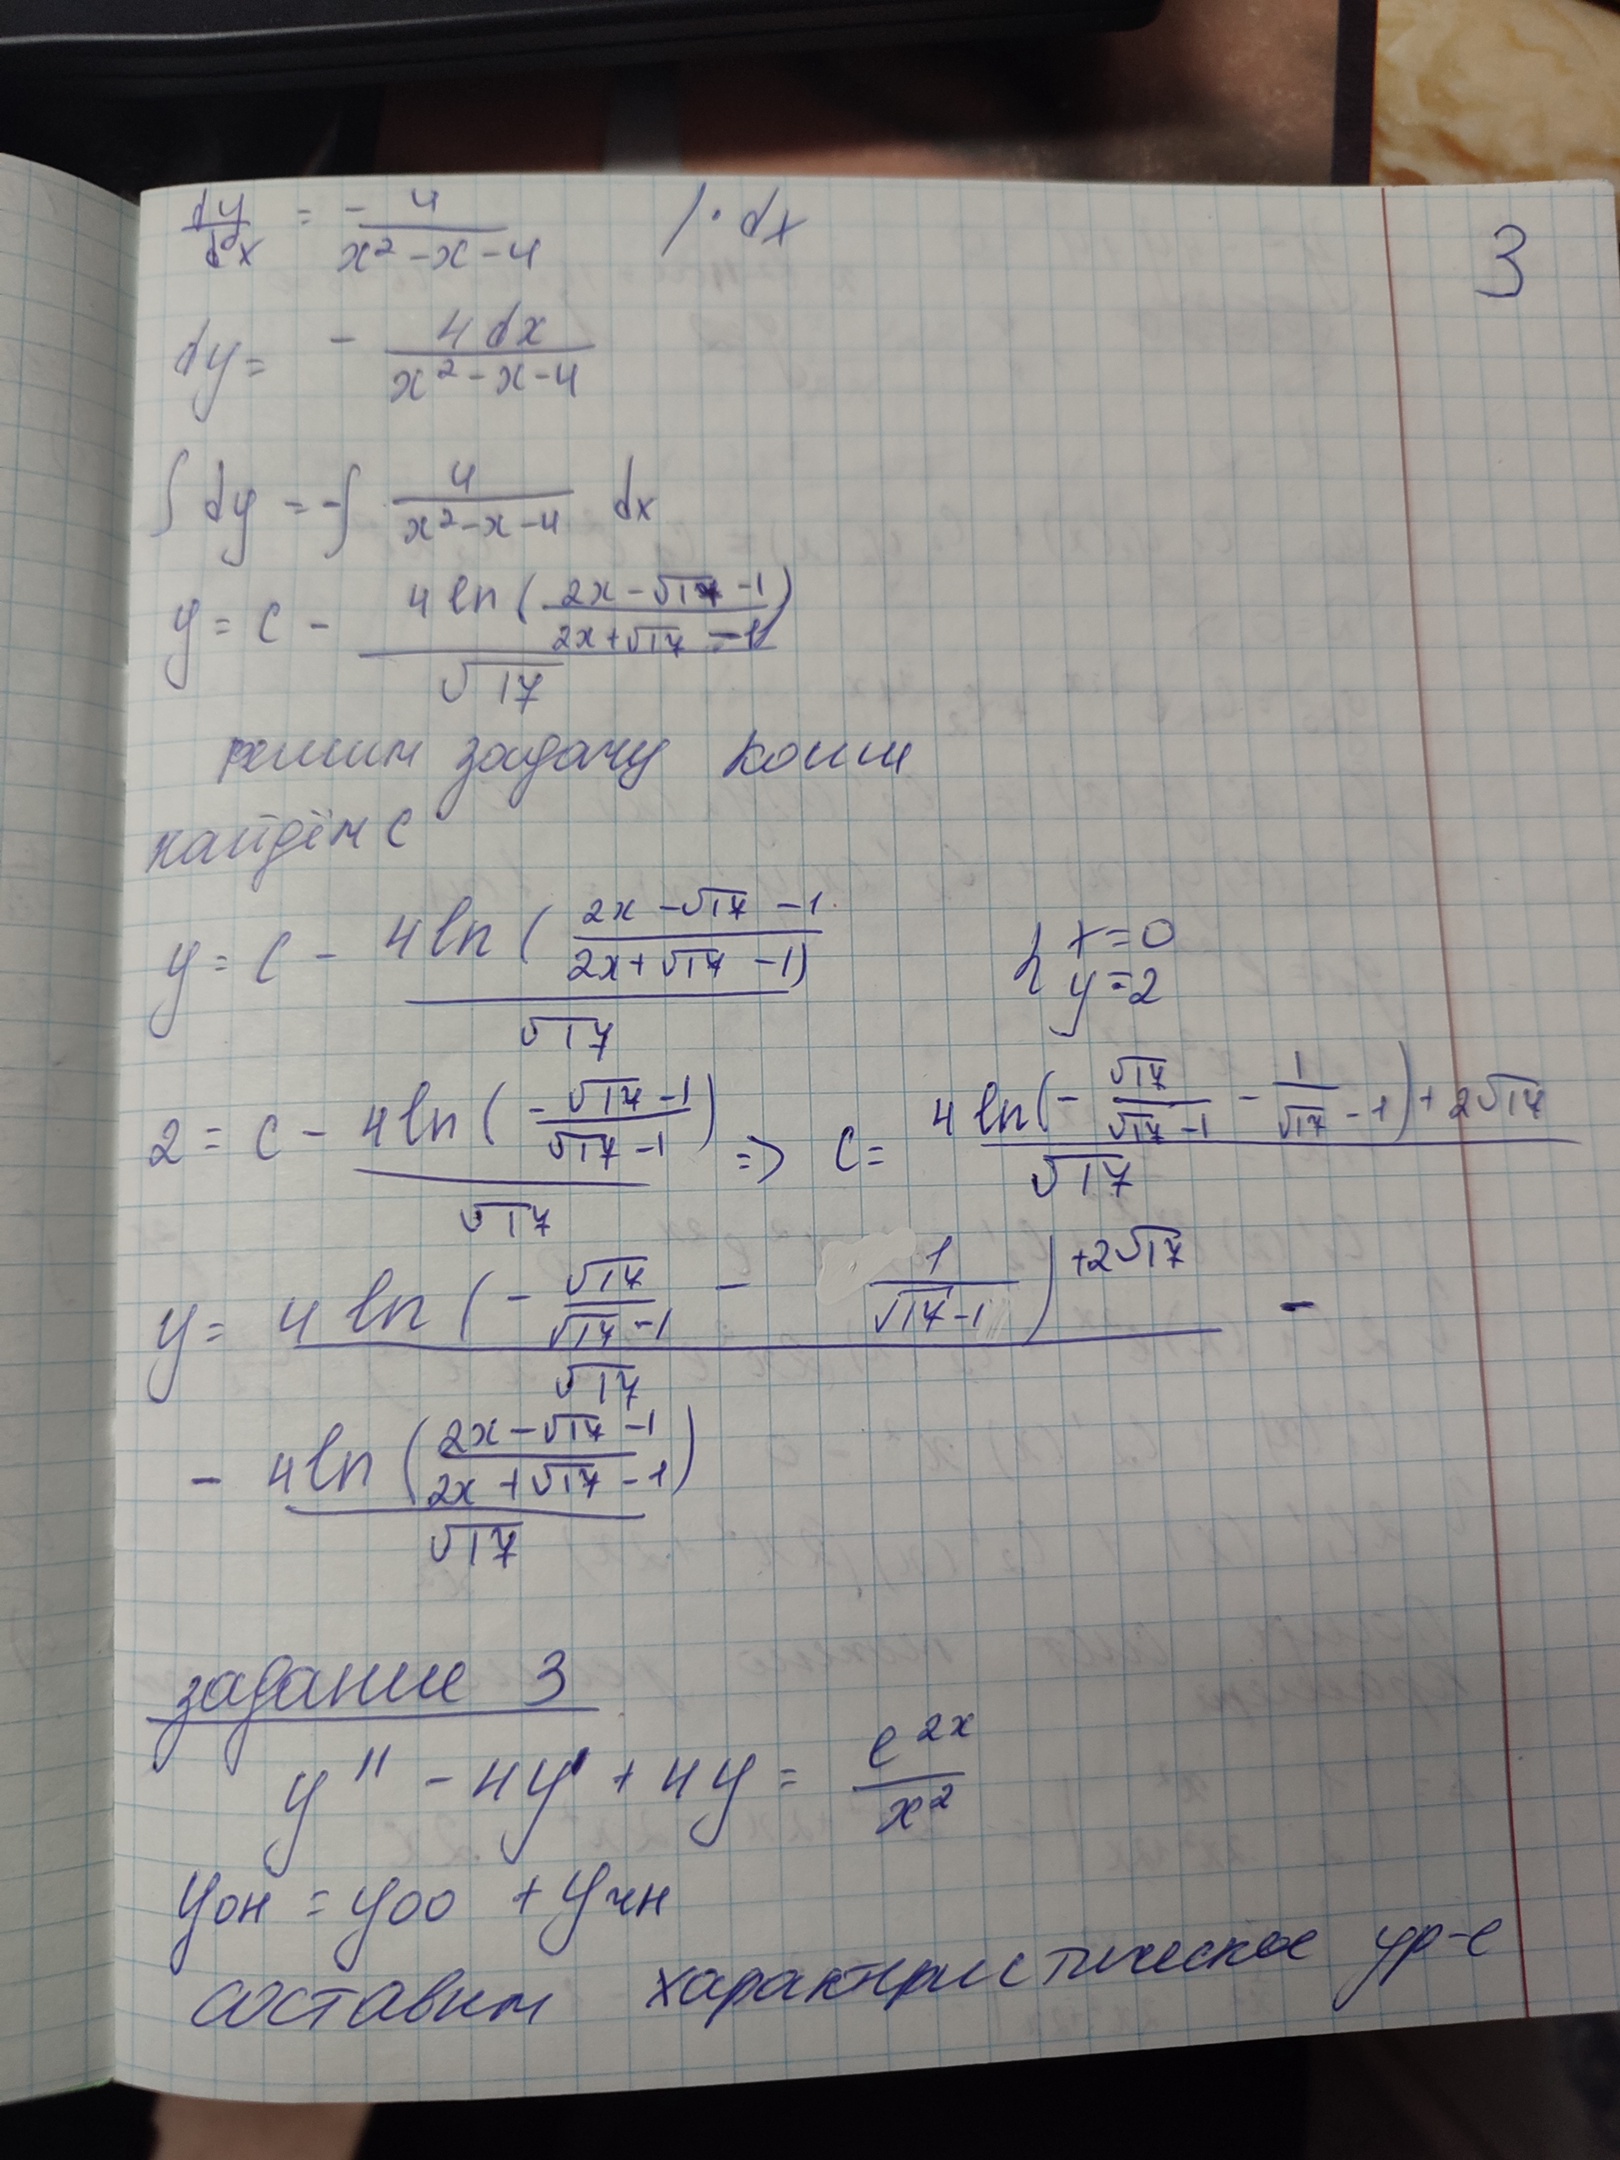 3
dy/dx = - 4/(x² - x - 4) /· dx
dy = - 4dx/(x² - x - 4)
∫ dy = -∫ 4/(x² - x - 4) dx
y = c - 4 ln((2x - √17 - 1)/(2x + √17 - 1))/√17
решим задачу коши
найдём c
y = c - 4 ln((2x - √17 - 1)/(2x + √17 - 1))/√17 { x = 0
y = 2
2 = c - 4 ln((-√17 - 1)/(√17 - 1))/√17 => c = (4 ln(- √17/(√17 - 1) - 1/(√17 - 1)) + 2√17)/√17
y = (4 ln(- √17/(√17 - 1) - 1/(√17 - 1)) + 2√17)/√17 -
- 4 ln((2x - √17 - 1)/(2x + √17 - 1))/√17
задание 3
y'' - 4y' + 4y = e^(2x)/x²
yон = yоо + yчн
составим характеристическое ур-е